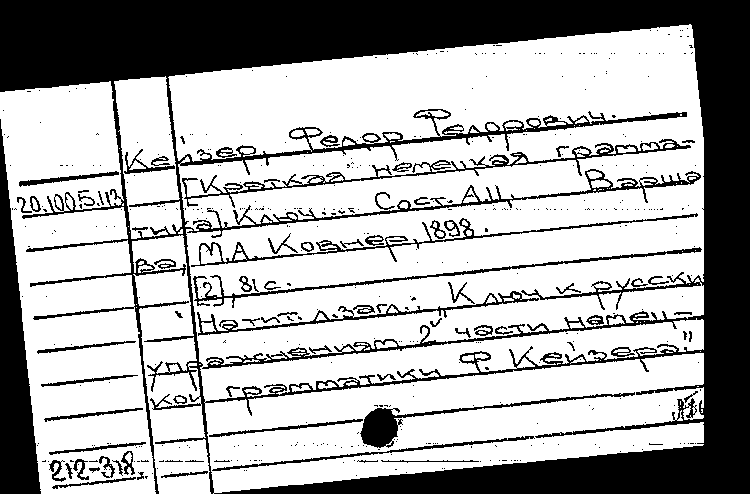 Кейзер, Федор Федорович.
[Краткая немецкая грамма-
20.100.5.113
тика]. Ключ.... Сост. А.Ц. Варша
ва, М.А. Ковнер, 1898.
[2], 81 с.
На тит. л. загл.: "Ключ к русски
упражнениям 2й части немец-
кой грамматики Ф. Кейзера."
212-318.